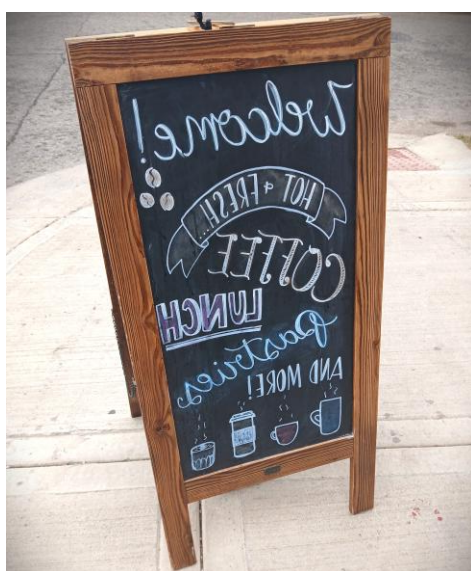 Welcome!
HOT & FRESH...
COFFEE
LUNCH
Pastries
AND MORE!